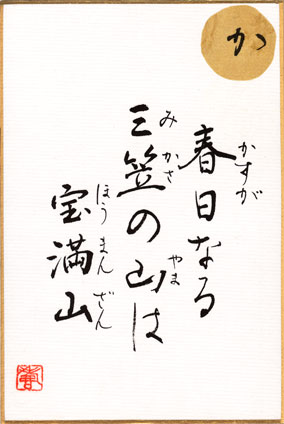 か
春日なる
かすが
三笠の山は
みかさ やま
宝満山
ほうまんざん